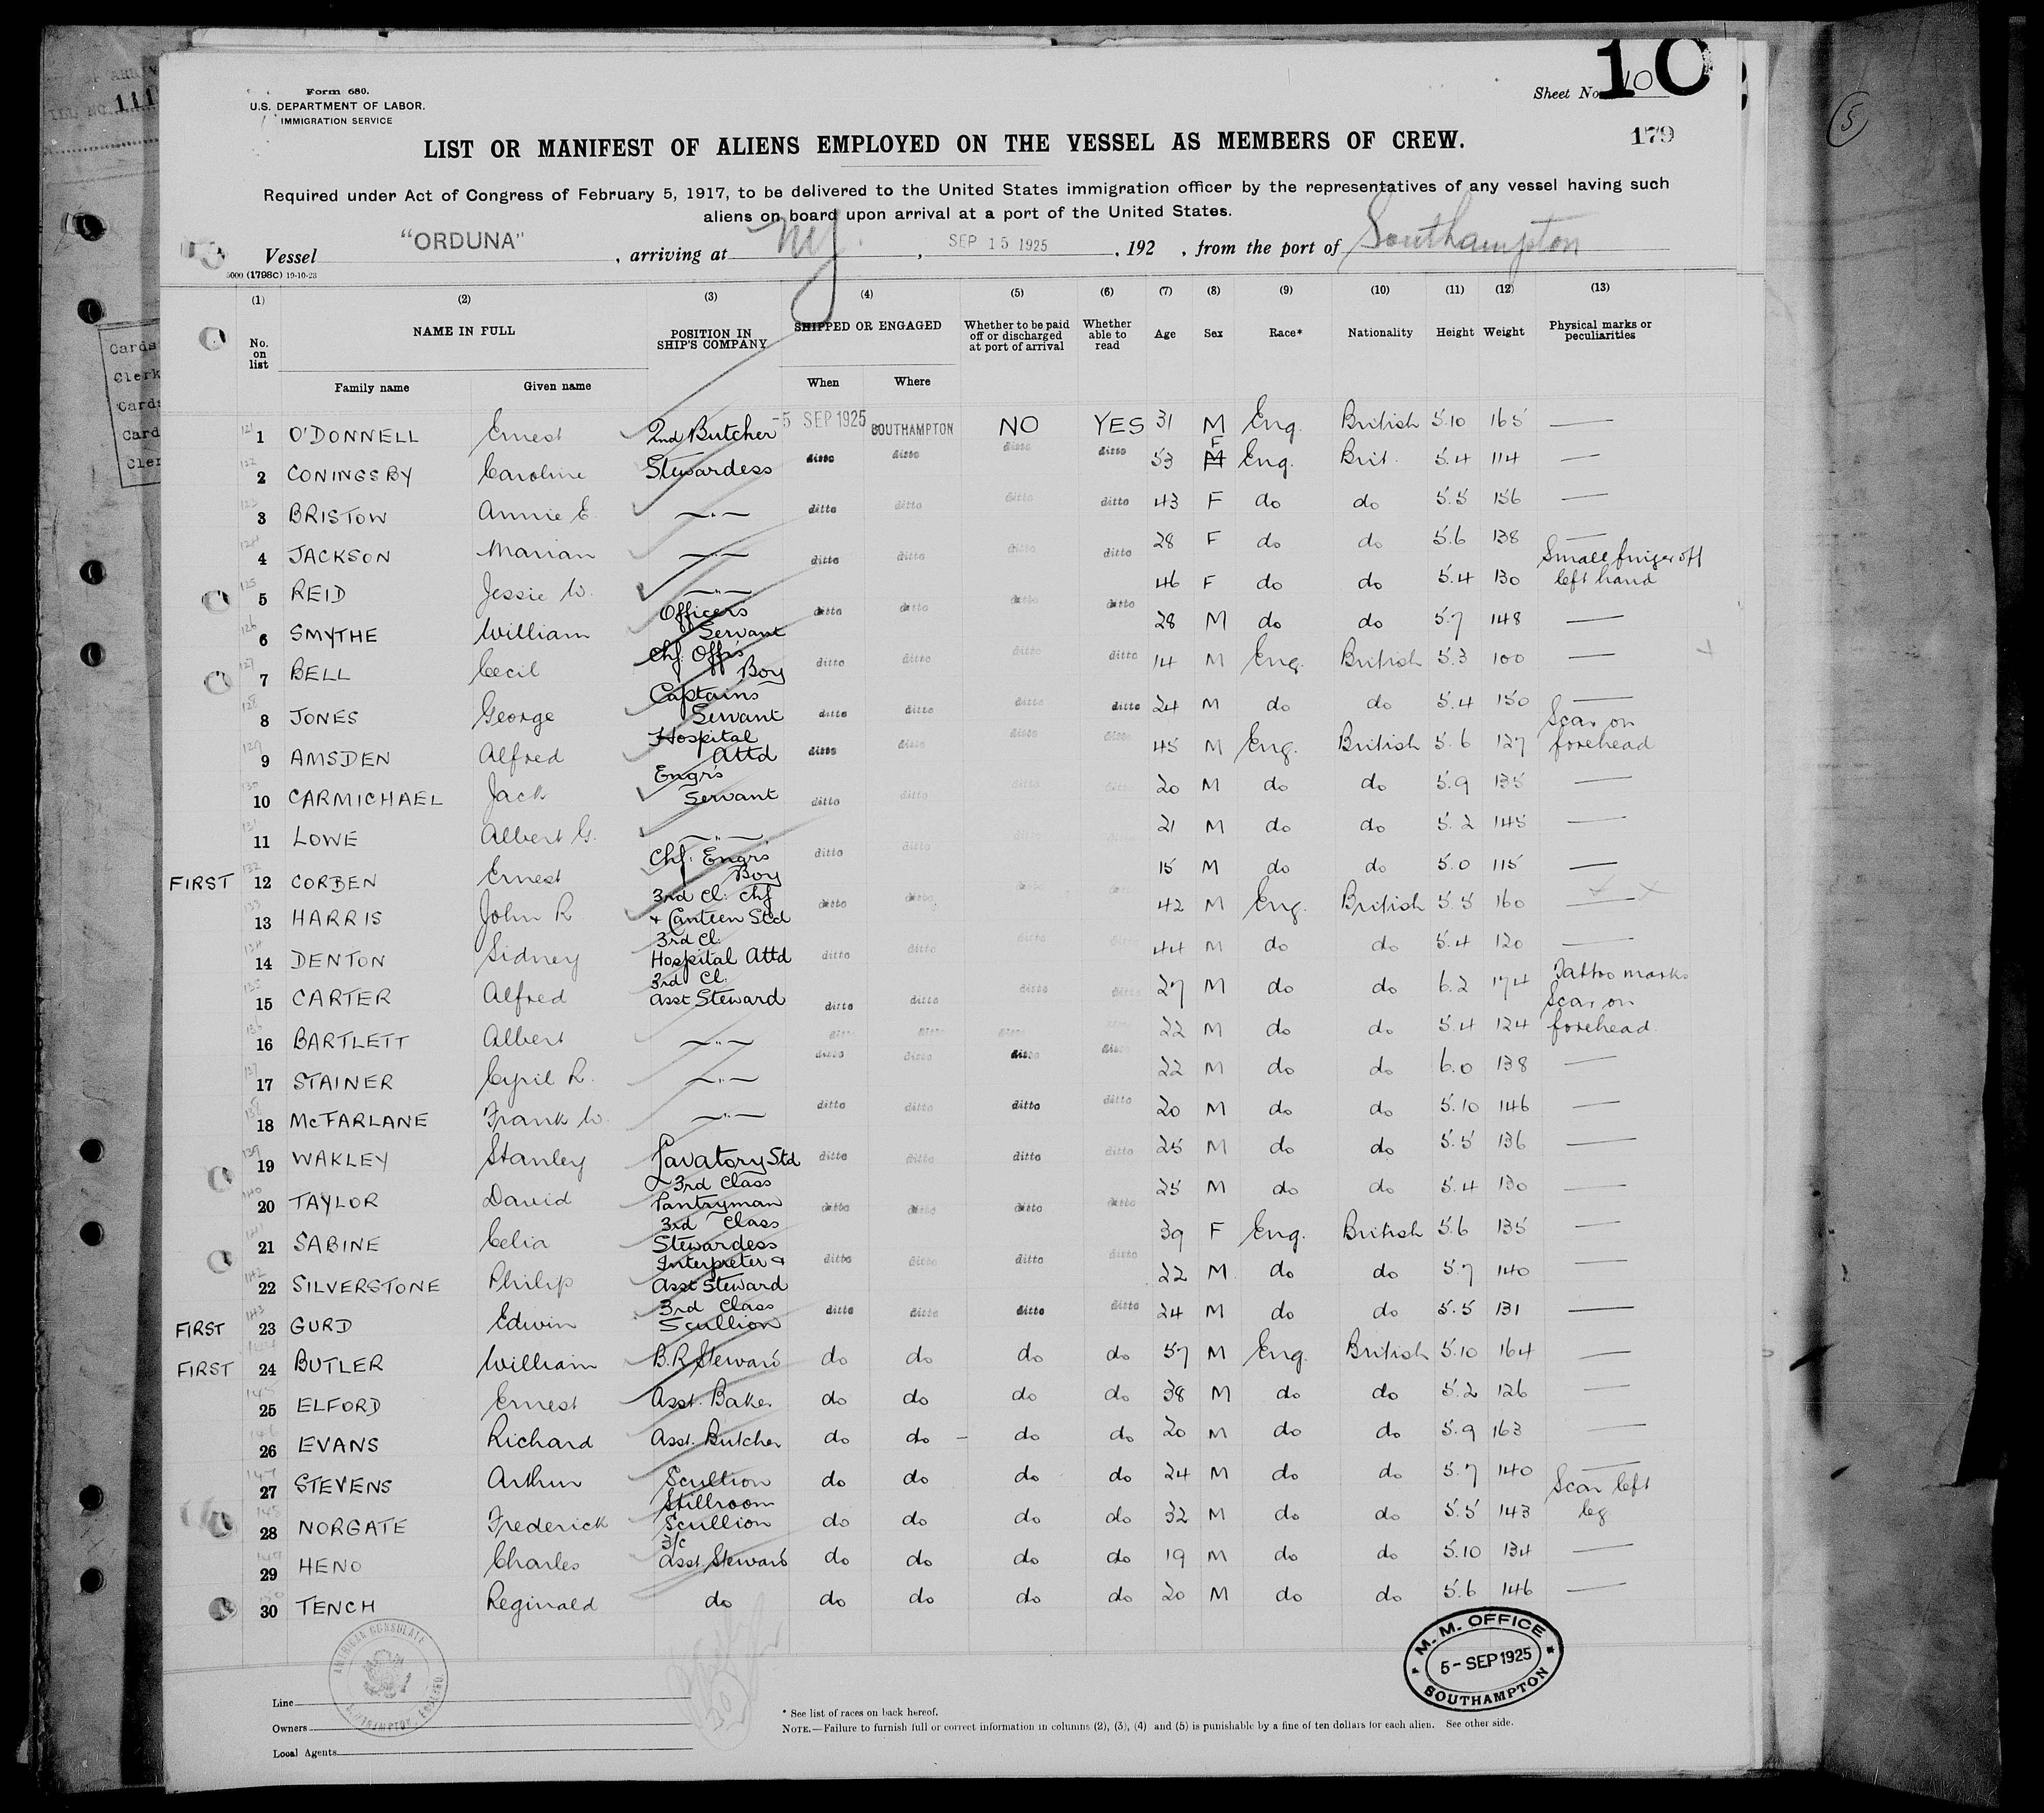 Form 680.
U.S. DEPARTMENT OF LABOR.
IMMIGRATION SERVICE
Sheet No. 10
10
179
LIST OR MANIFEST OF ALIENS EMPLOYED ON THE VESSEL AS MEMBERS OF CREW.
Required under Act of Congress of February 5, 1917, to be delivered to the United States immigration officer by the representatives of any vessel having such
aliens on board upon arrival at a port of the United States.
Vessel "ORDUNA", arriving at NY, SEP 15 1925, 192 , from the port of Southampton
5000 (1798C) 19-10-23
(1) (2) (3) (4) (5) (6) (7) (8) (9) (10) (11) (12) (13)
No. on list NAME IN FULL POSITION IN SHIP'S COMPANY SHIPPED OR ENGAGED Whether to be paid off or discharged at port of arrival Whether able to read Age Sex Race* Nationality Height Weight Physical marks or peculiarities
Family name Given name When Where
121 1 O'DONNELL Ernest 2nd Butcher -5 SEP 1925 SOUTHAMPTON NO YES 31 M Eng. British 5.10 165 —
122 2 CONINGSBY Caroline Stewardess ditto ditto ditto ditto 53 F Eng. Brit. 5.4 114 —
123 3 BRISTOW Annie E. —"— ditto ditto ditto ditto 43 F do do 5.5 156 —
124 4 JACKSON Marian —"— ditto ditto ditto ditto 28 F do do 5.6 138 —
125 5 REID Jessie W. —"— 46 F do do 5.4 130 Small finger off left hand
126 6 SMYTHE William Officers Servant ditto ditto ditto ditto 28 M do do 5.7 148 —
127 7 BELL Cecil Chf. Offrs Boy ditto ditto ditto ditto 14 M Eng. British 5.3 100 —
128 8 JONES George Captains Servant ditto ditto ditto ditto 24 M do do 5.4 150 —
129 9 AMSDEN Alfred Hospital Attd ditto ditto ditto ditto 45 M Eng. British 5.6 127 Scar on forehead
130 10 CARMICHAEL Jack Engrs Servant ditto ditto ditto ditto 20 M do do 5.9 135 —
131 11 LOWE Albert G. —"— ditto ditto ditto 21 M do do 5.2 145 —
FIRST 132 12 CORBEN Ernest Chf. Engrs Boy 15 M do do 5.0 115 —
133 13 HARRIS John R. 3rd Cl. Chf + Canteen Std ditto ditto ditto ditto 42 M Eng. British 5.5 160 —
134 14 DENTON Sidney 3rd Cl. Hospital Attd ditto ditto ditto ditto 44 M do do 5.4 120 —
135 15 CARTER Alfred 3rd Cl. Asst Steward ditto ditto ditto ditto 27 M do do 6.2 174 Tattoo marks
136 16 BARTLETT Albert —"— ditto ditto ditto ditto 22 M do do 5.4 124 Scar on forehead
137 17 STAINER Cyril R. —"— ditto ditto ditto ditto 22 M do do 6.0 138 —
138 18 McFARLANE Frank W. —"— ditto ditto ditto ditto 20 M do do 5.10 146 —
139 19 WAKLEY Stanley Lavatory Std ditto ditto ditto ditto 25 M do do 5.5 136 —
140 20 TAYLOR David 3rd Class Pantryman ditto ditto ditto ditto 25 M do do 5.4 130 —
141 21 SABINE Celia 3rd Class Stewardess 39 F Eng. British 5.6 135 —
142 22 SILVERSTONE Philip Interpreter & Asst Steward ditto ditto ditto ditto 22 M do do 5.7 140 —
FIRST 143 23 GURD Edwin 3rd Class Scullion ditto ditto ditto ditto 24 M do do 5.5 131 —
FIRST 144 24 BUTLER William B.R. Steward do do do do 57 M Eng. British 5.10 164 —
145 25 ELFORD Ernest Asst. Baker do do do do 38 M do do 5.2 126 —
146 26 EVANS Richard Asst. Butcher do do – do do 20 M do do 5.9 163 —
147 27 STEVENS Arthur Scullion do do do do 24 M do do 5.7 140 —
148 28 NORGATE Frederick Stillroom Scullion do do do do 32 M do do 5.5 143 Scar left leg
149 29 HENO Charles 3/c Asst. Steward do do do do 19 M do do 5.10 134 —
150 30 TENCH Reginald do do do do do 20 M do do 5.6 146 —
AMERICAN CONSULATE
SOUTHAMPTON, ENGLAND
M. M. OFFICE
5- SEP 1925
SOUTHAMPTON
Line
Owners
Local Agents
* See list of races on back hereof.
NOTE.—Failure to furnish full or correct information in columns (2), (3), (4) and (5) is punishable by a fine of ten dollars for each alien. See other side.
5
111
Cards
Clerk
Cards
Card
Cler